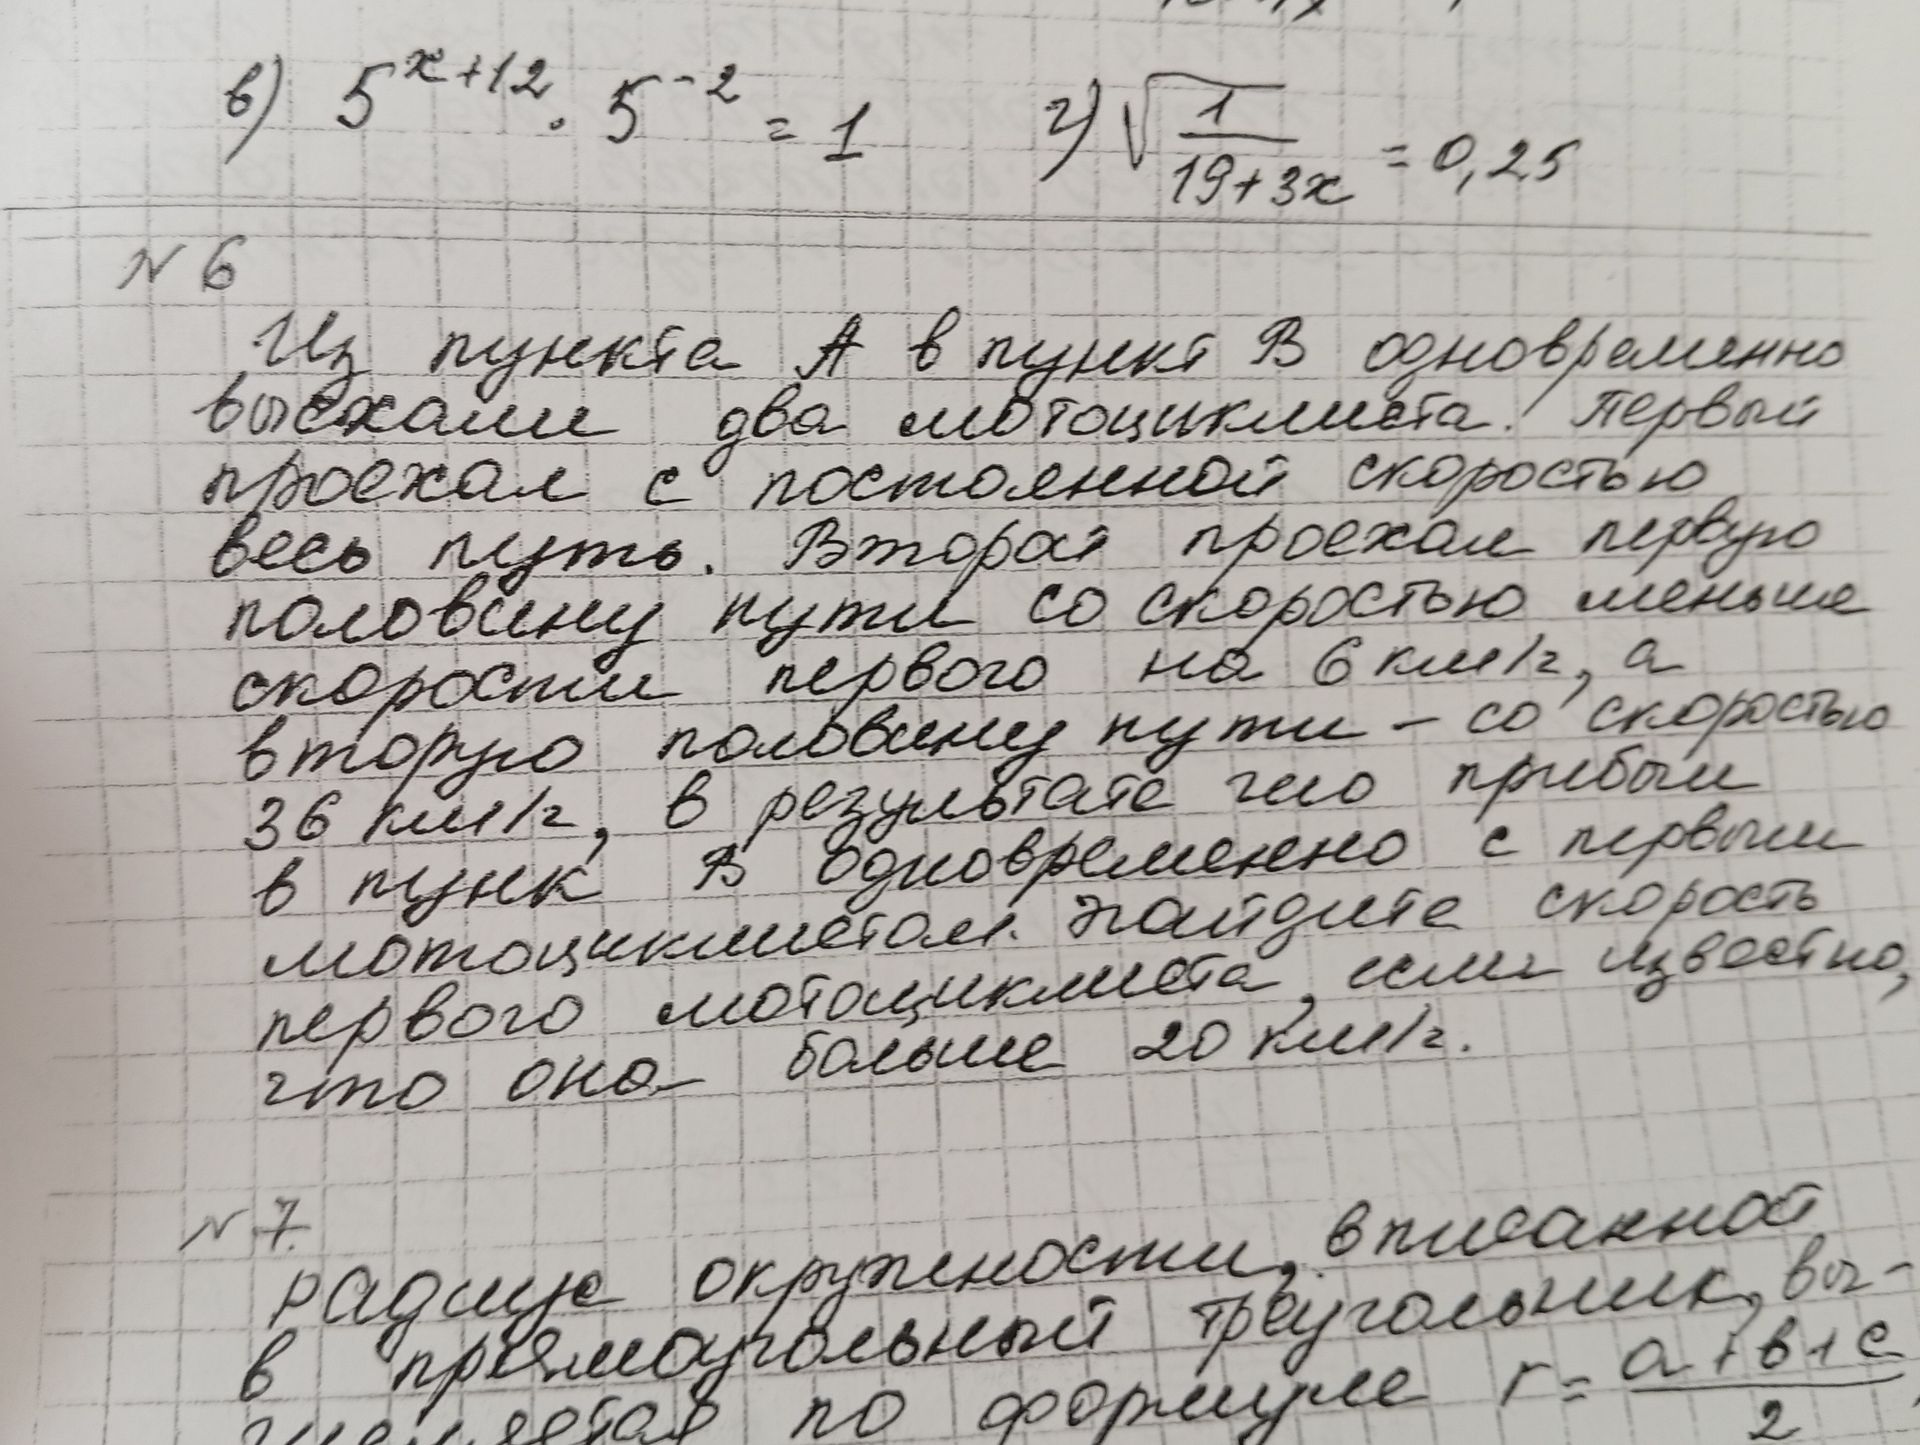 в) 5^{x+12} · 5^{-2} = 1    г) √(1/(19+3x)) = 0,25
N 6
Из пункта А в пункт В одновременно
выехали два мотоциклиста. Первый
проехал с постоянной скоростью
весь путь. Второй проехал первую
половину пути со скоростью меньше
скорости первого на 6 км/г, а
вторую половину пути – со скоростью
36 км/г, в результате чего прибыл
в пунк В одновременно с первым
мотоциклистом. Найдите скорость
первого мотоциклиста, если известно,
что она больше 20 км/г.
N 7.
Радиус окружности, вписанной
в прямоугольный треугольник, вы-
по формуле r = (a+b+c)/2